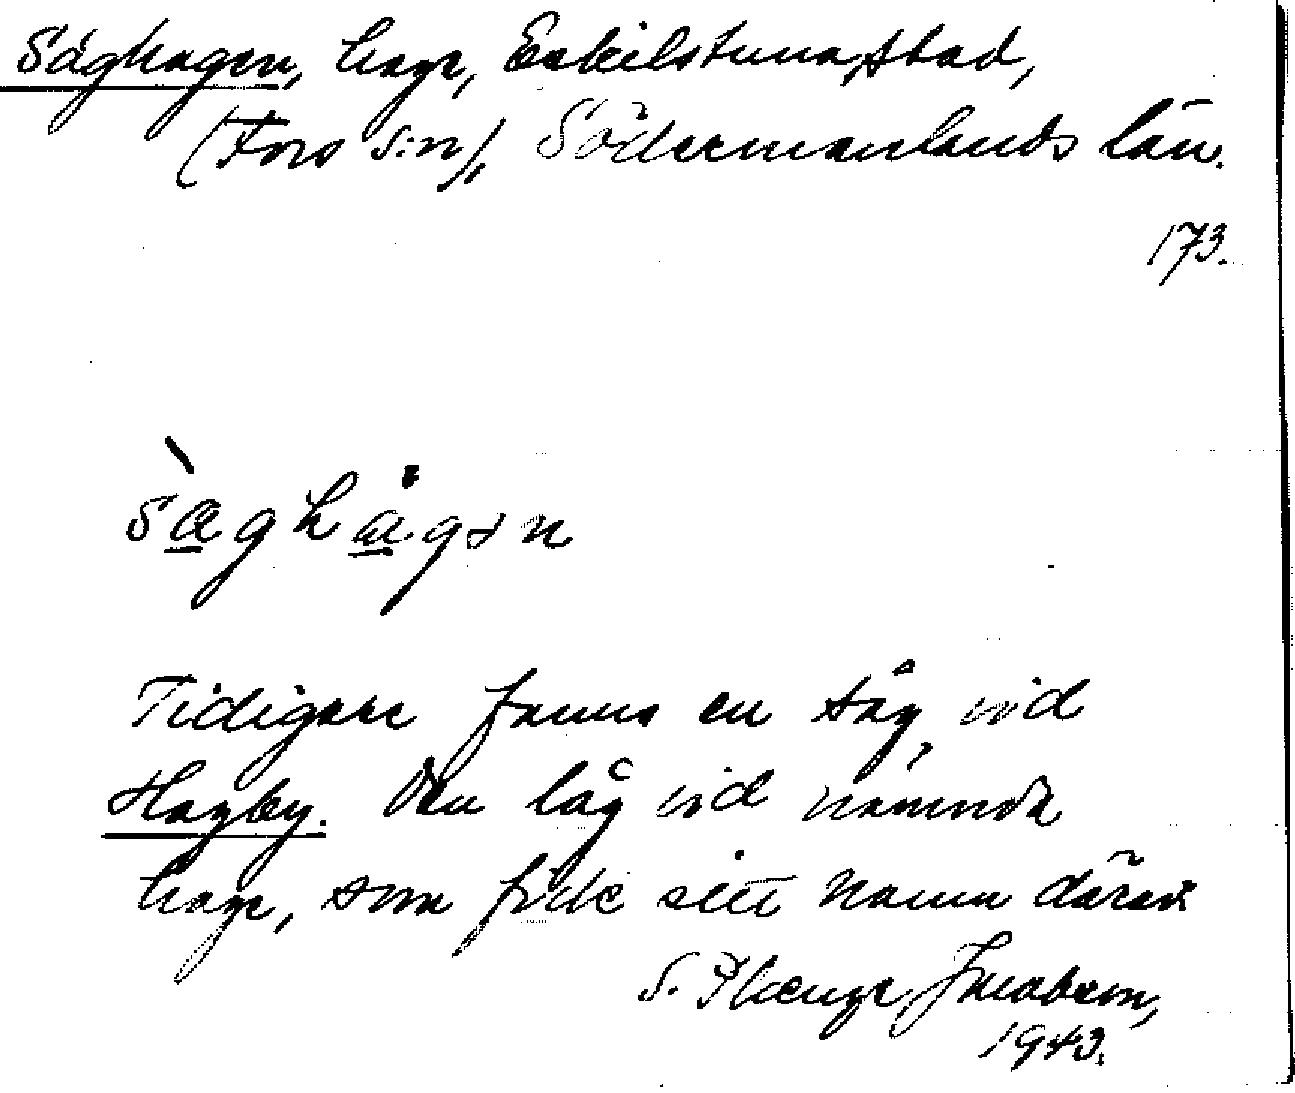 Såghagen, hage, Eskilstuna stad,
(Fors s:n), Södermanlands län.
173.
sæghagən
Tidigare fanns en såg vid
Hagby. Den låg vid nämnda
hage, som fick sitt namn därav
S. Plænge Jacobson,
1943.